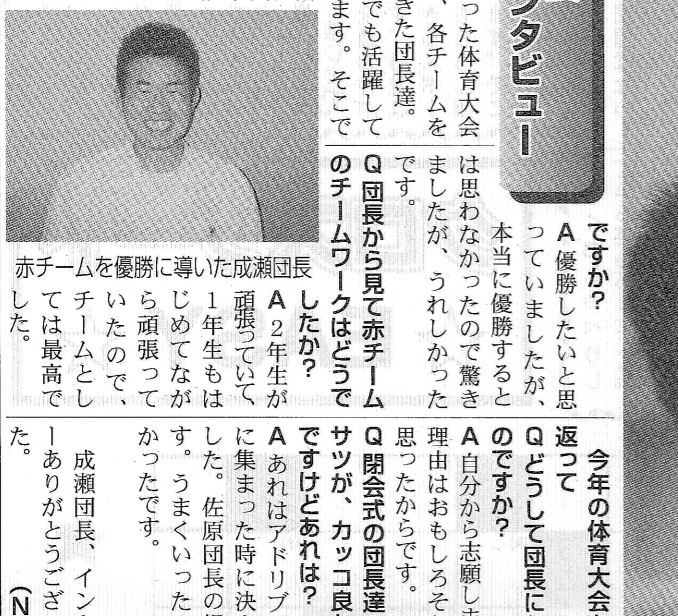 タビュー
った体育大会
、各チームを
きた団長達。
でも活躍して
ます。そこで
ですか?
A優勝したいと思
っていましたが、
本当に優勝すると
は思わなかったので驚き
ましたが、うれしかった
です。
Q団長から見て赤チーム
のチームワークはどうで
したか?
A2年生が
頑張っていて
1年生もは
じめてなが
ら頑張って
いたので
チームとし
ては最高で
した。
赤チームを優勝に導いた成瀬団長
今年の体育大会
返って
Qどうして団長に
のですか?
A自分から志願しま
理由はおもしろそ
思ったからです。
Q閉会式の団長達
サツが、カッコ良
ですけどあれは?
Aあれはアドリブ
に集まった時に決
した。佐原団長の
す。うまくいった
かったです。
成瀬団長、イン
ーありがとうござ
た。
(N